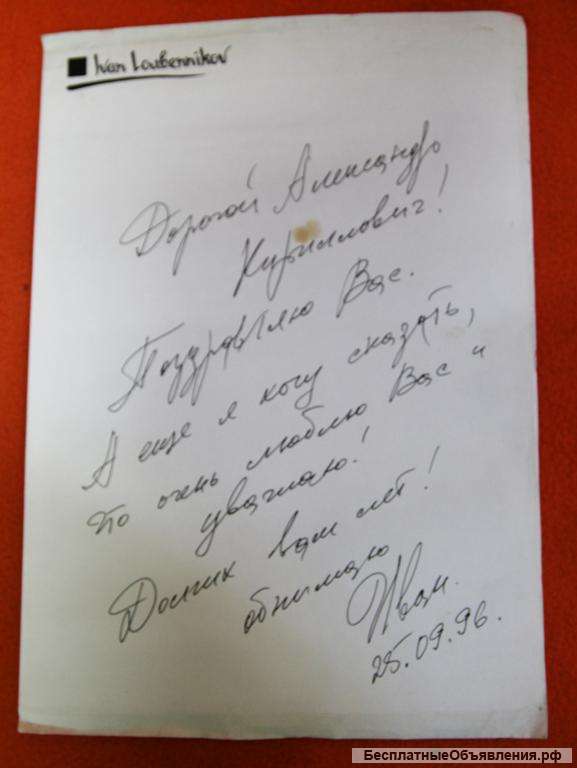 Ivan Loubennikov
Дорогой Александр
Кириллович!
Поздравляю Вас.
А еще я хочу сказать,
что очень люблю Вас и
уважаю!
Долгих вам лет!
обнимаю
Иван.
25.09.96.
БесплатныеОбъявления.рф